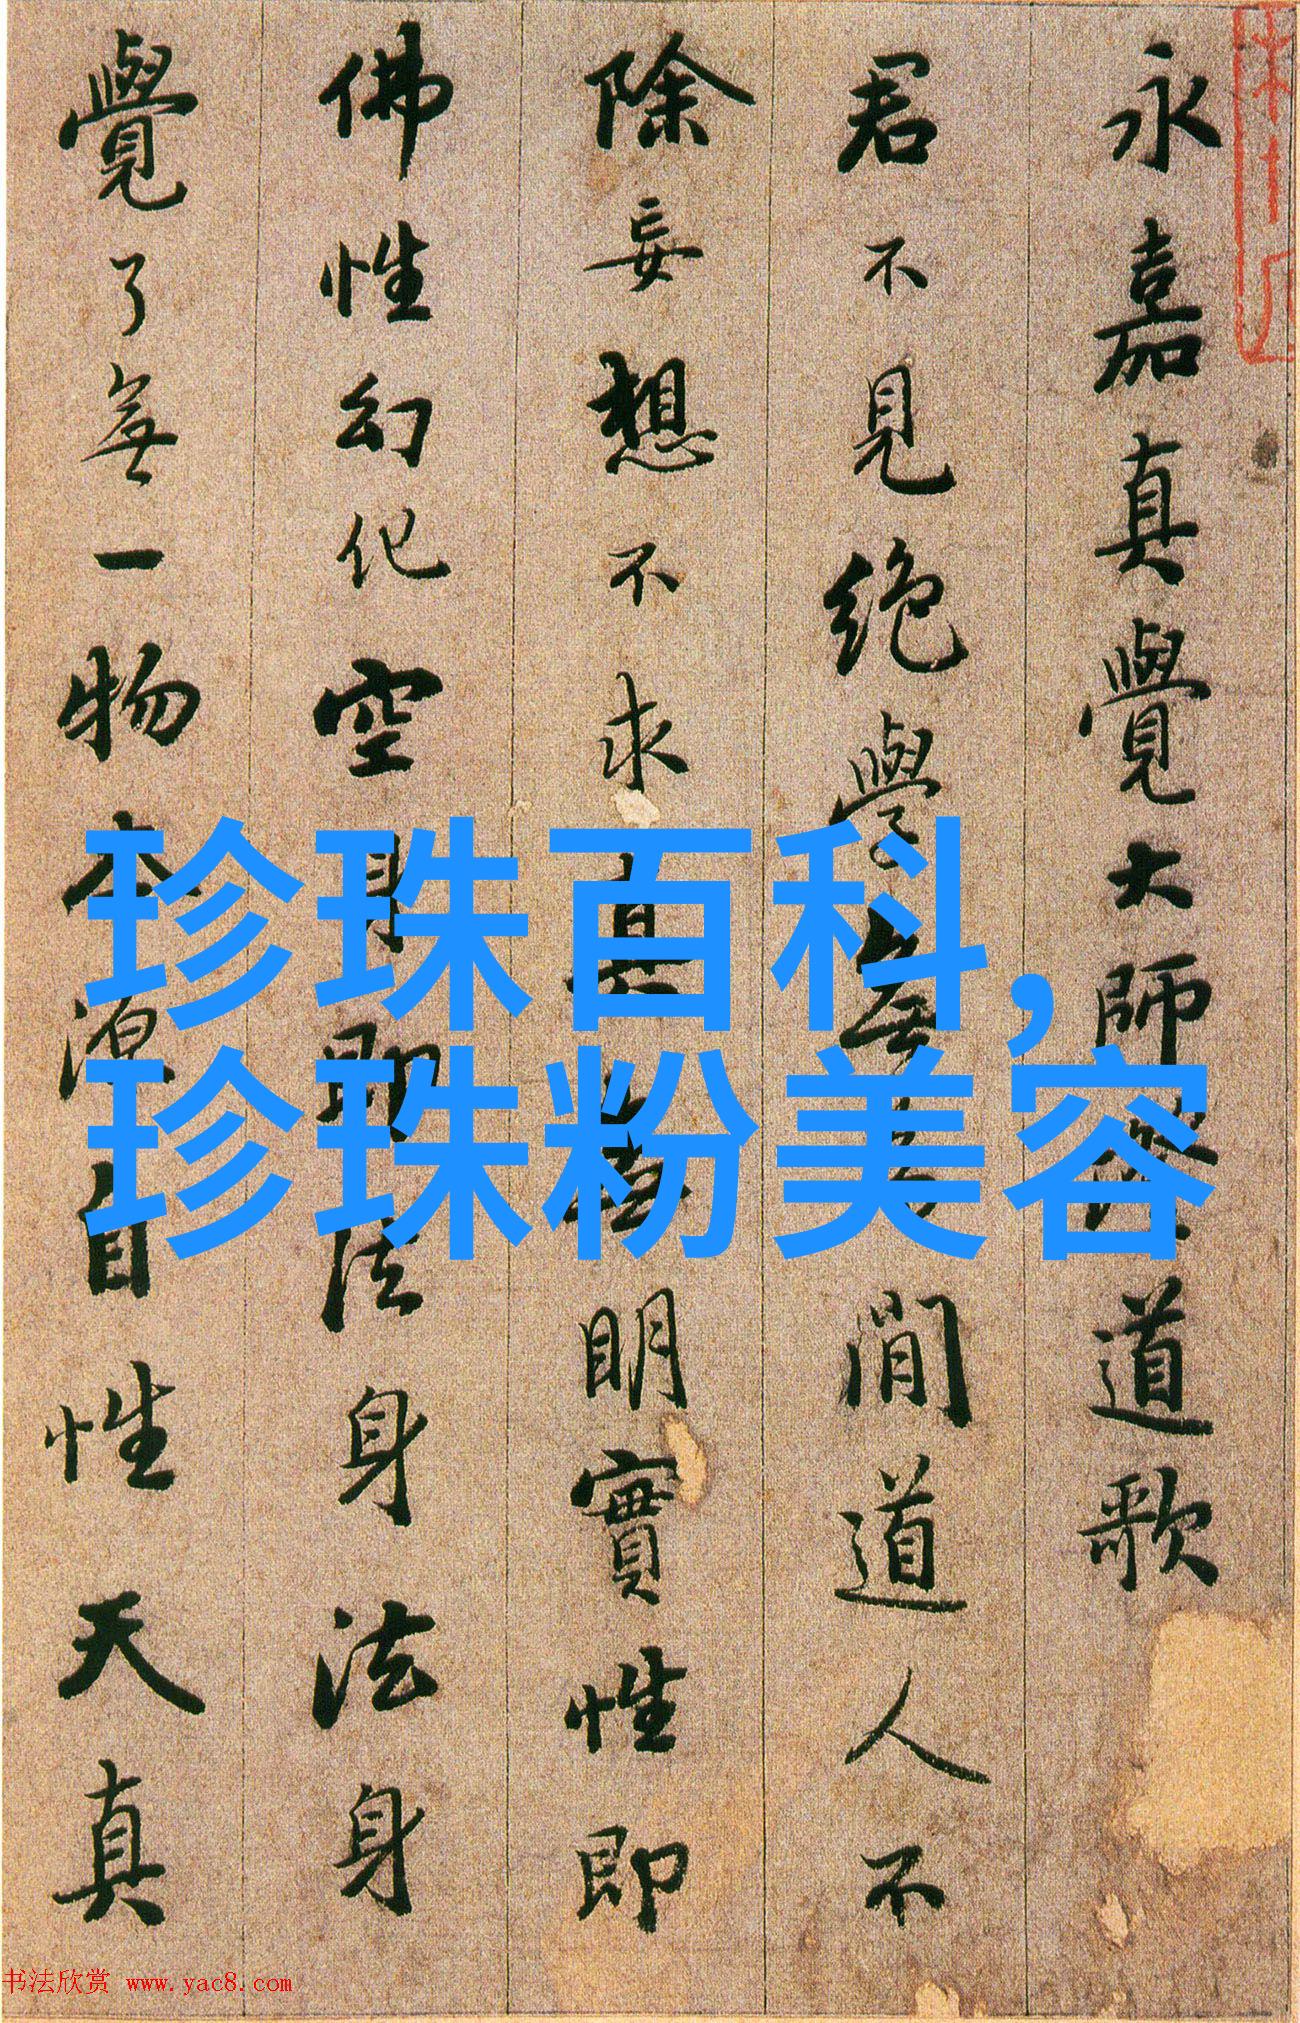 永嘉真覺大師證道歌
君不見絕學無為閒道人不
除妄想不求真無明實性即
佛性幻化空身即法身法身
覺了無一物本源自性天真
珍珠百科,
珍珠粉美容
书法欣赏 www.yac8.com